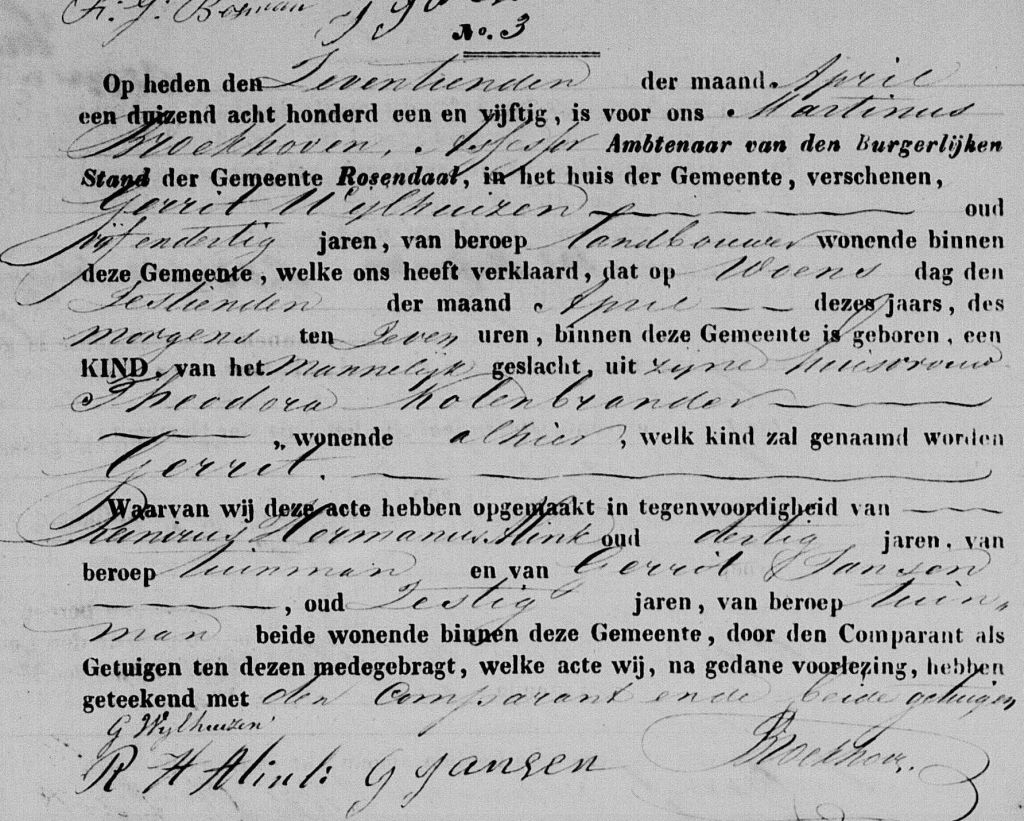 F: J: Bosman
No. 3
Op heden den Zeventienden der maand April
een duizend acht honderd een en vijftig, is voor ons Martinus
Broekhoven, Assessor Ambtenaar van den Burgerlijken
Stand der Gemeente Rosendaal, in het huis der Gemeente, verschenen,
Gerrit Wylhuizen oud
vijf en dertig jaren, van beroep landbouwer wonende binnen
deze Gemeente, welke ons heeft verklaard, dat op Woens dag den
Zestienden der maand April dezes jaars, des
morgens ten Zeven uren, binnen deze Gemeente is geboren, een
KIND, van het Mannelijk geslacht, uit zijne huisvrouw
Theodora Kolenbrander
„ wonende alhier, welk kind zal genaamd worden
Gerrit.
Waarvan wij deze acte hebben opgemaakt in tegenwoordigheid van
Hermanus Alink oud dertig jaren, van
beroep tuinman en van Gerrit Jansen
, oud Zestig jaren, van beroep tuin„
man beide wonende binnen deze Gemeente, door den Comparant als
Getuigen ten dezen medegebragt, welke acte wij, na gedane voorlezing, hebben
geteekend met den Comparant en de beide getuigen
G Wylhuizen
R H Alink G Jansen Broekhov.